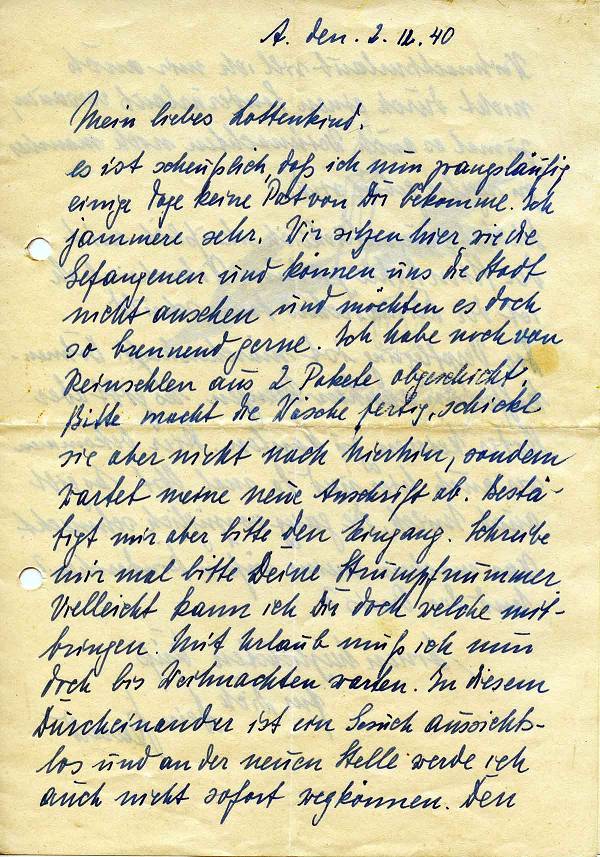 A. den. 2. 12. 40
Mein liebes Lottenkind.
es ist scheußlich, daß ich nun zwangsläufig
einige Tage keine Post von Dir bekomme. Ich
jammere sehr. Wir sitzen hier wie die
Gefangenen und können uns die Stadt
nicht ansehen und möchten es doch
so brennend gerne. Ich habe noch von
Reinsehlen aus 2 Pakete abgeschickt.
Bitte macht die Wäsche fertig, schickt
sie aber nicht nach hierhin, sondern
wartet meine neue Anschrift ab. Bestä-
tigt mir aber bitte den Eingang. Schreibe
mir mal bitte Deine Strumpfnummer
Vielleicht kann ich Dir doch welche mit-
bringen. Mit Urlaub muß ich nun
doch bis Weihnachten warten. In diesem
Durcheinander ist ein Gesuch aussichts-
los und an der neuen Stelle werde ich
auch nicht sofort wegkönnen. Den